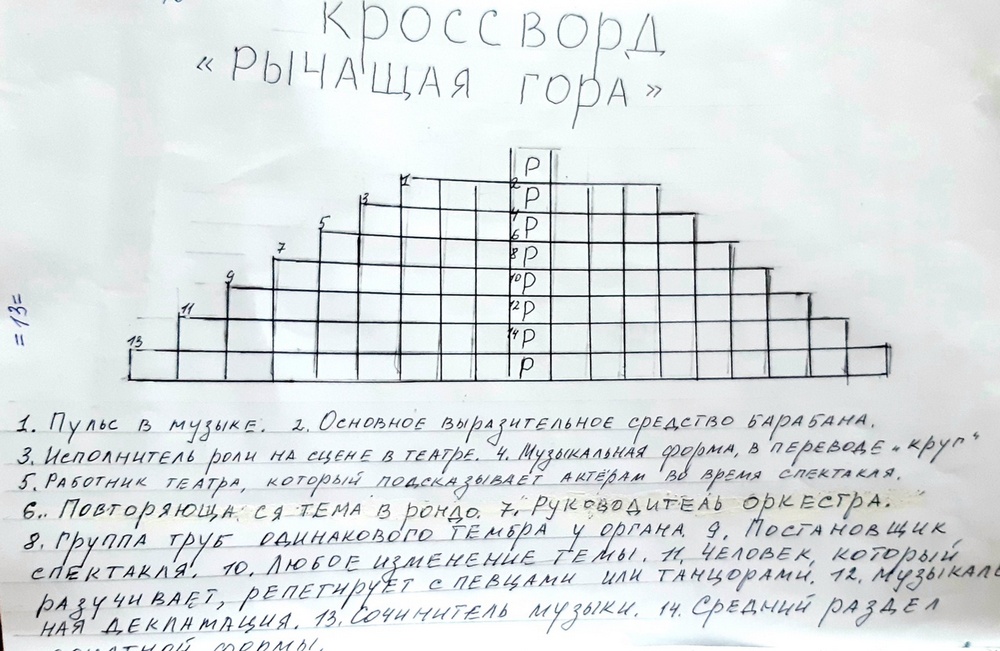 КРОССВОРД
«РЫЧАЩАЯ ГОРА»
Р
1 2 Р
3 4 Р
5 6 Р
7 8 Р
9 10 Р
11 12 Р
13 14 Р
=13=
1. Пульс в музыке. 2. Основное выразительное средство барабана.
3. Исполнитель роли на сцене в театре. 4. Музыкальная форма, в переводе „круг"
5. Работник театра, который подсказывает актёрам во время спектакля.
6. Повторяюща ся тема в рондо. 7. Руководитель оркестра.
8. Группа труб одинакового тембра у органа. 9. Постановщик
спектакля. 10. Любое изменение темы. 11. Человек, который
разучивает, репетирует с певцами или танцорами. 12. Музыкаль
ная декламация. 13. Сочинитель музыки. 14. Средний раздел
формы.